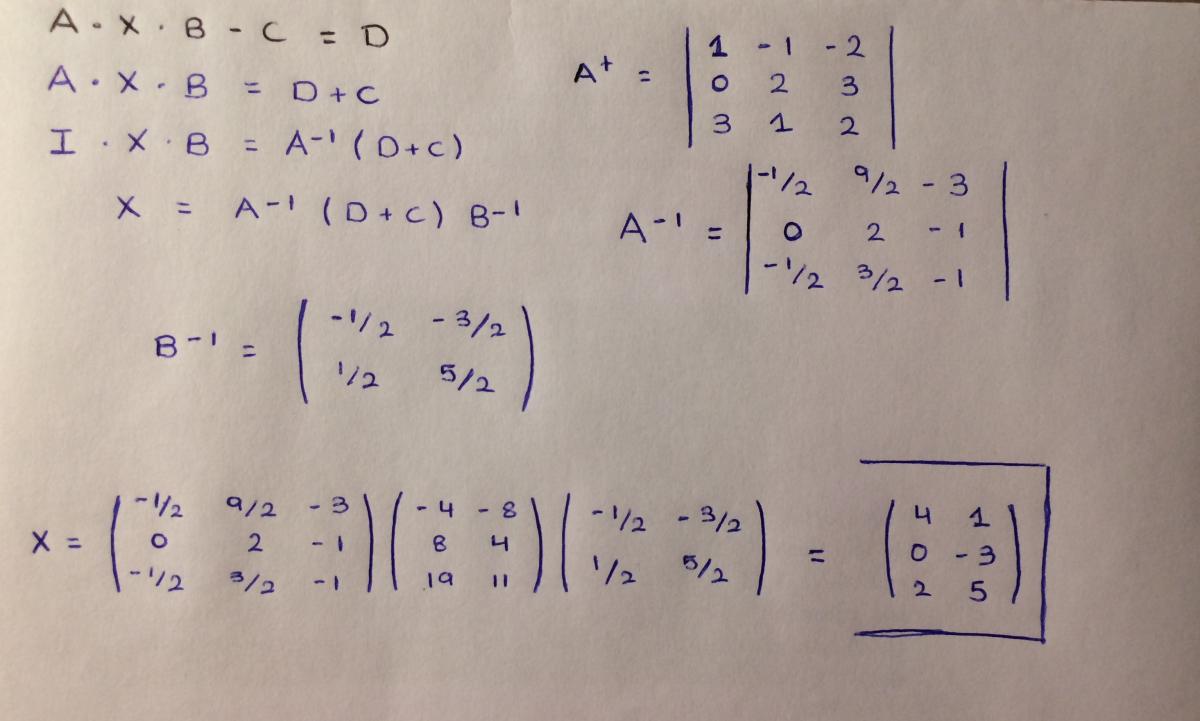 A · X · B - C = D
A · X · B = D + C
I · X · B = A⁻¹ (D+C)
X = A⁻¹ (D+C) B⁻¹
A⁺ = | 1 -1 -2 |
| 0 2 3 |
| 3 1 2 |
A⁻¹ = | -1/2 9/2 -3 |
| 0 2 -1 |
| -1/2 3/2 -1 |
B⁻¹ = ( -1/2 -3/2 )
( 1/2 5/2 )
X = ( -1/2 9/2 -3 ) ( -4 -8 ) ( -1/2 -3/2 ) = ( 4 1 )
( 0 2 -1 ) ( 8 4 ) ( 1/2 5/2 ) ( 0 -3 )
( -1/2 3/2 -1 ) ( 19 11 ) ( 2 5 )